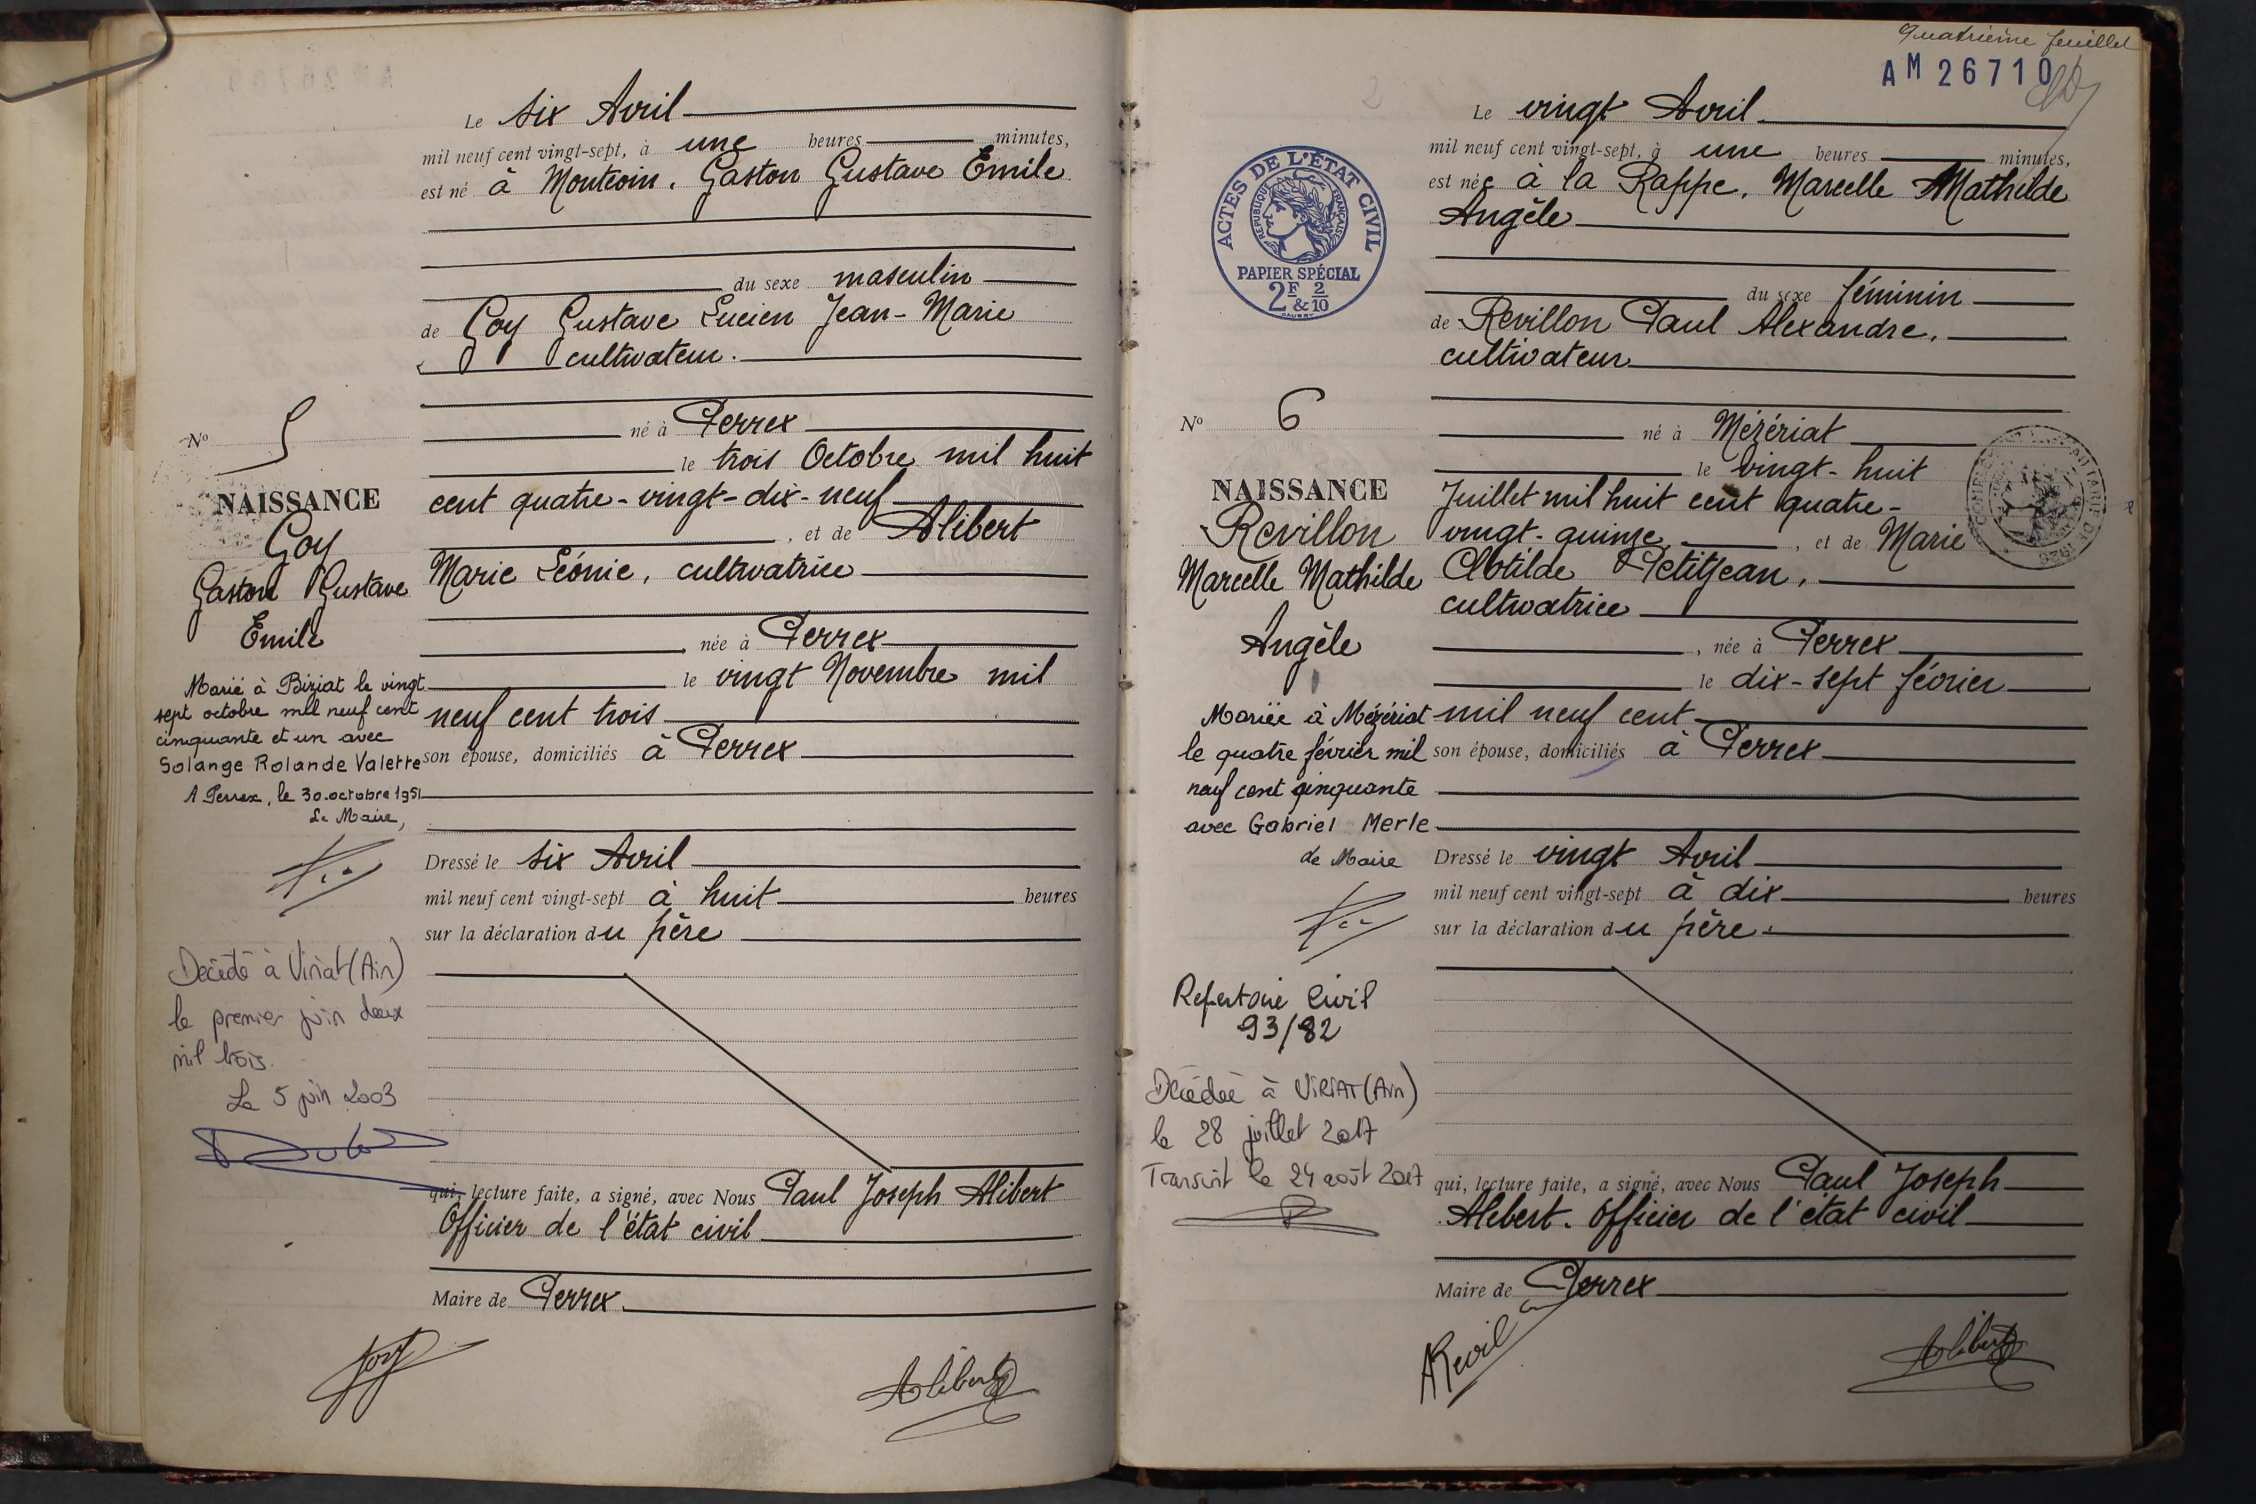 Le six Avril
mil neuf cent vingt-sept, à une heures minutes,
est né à Montcoin. Gaston Gustave Emile
du sexe masculin
de Goy Gustave Lucien Jean-Marie
cultivateur.
né à Perrex
le trois Octobre mil huit
cent quatre-vingt-dix-neuf
, et de Alibert
Marie Léonie, cultivatrice
, née à Perrex
le vingt Novembre mil
neuf cent trois
son épouse, domiciliés à Perrex
Dressé le six Avril
mil neuf cent vingt-sept à huit heures
sur la déclaration du père
qui, lecture faite, a signé, avec Nous Paul Joseph Alibert
Officier de l'état civil
Maire de Perrex
Goy
Alibert
No 5
NAISSANCE
Goy
Gaston Gustave
Emile
Marié à Biziat le vingt
sept octobre mil neuf cent
cinquante et un avec
Solange Rolande Valette
A Perrex, le 30.octobre 1951
Le Maire,
Décédé à Viriat (Ain)
le premier juin deux
mil trois.
Le 5 juin 2003
Quatrième feuillet
AM 26710
Le vingt Avril
mil neuf cent vingt-sept, à une heures minutes,
est née à la Rappe. Marcelle Mathilde
Angèle
du sexe féminin
de Revillon Paul Alexandre,
cultivateur
né à Mézériat
le vingt-huit
Juillet mil huit cent quatre-
vingt-quinze, et de Marie
Clotilde Petitjean,
cultivatrice
, née à Perrex
le dix-sept février
mil neuf cent
son épouse, domiciliés à Perrex
Dressé le vingt Avril
mil neuf cent vingt-sept à dix heures
sur la déclaration du père.
qui, lecture faite, a signé, avec Nous Paul Joseph
Alibert. Officier de l'état civil
Maire de Perrex
Alibert
ACTES DE L'ÉTAT CIVIL
RÉPUBLIQUE FRANÇAISE
PAPIER SPÉCIAL
2F & 2/10
No 6
NAISSANCE
Revillon
Marcelle Mathilde
Angèle
Mariée à Mézériat
le quatre février mil
neuf cent cinquante
avec Gabriel Merle
Le Maire
Repertoire Civil
93/82
Décédée à VIRIAT (Ain)
le 28 juillet 2017
Transcrit le 24 août 2017